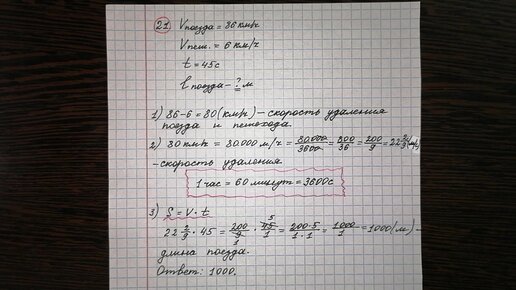 21) Vпоезда = 86 км/ч
Vпеш. = 6 км/ч
t = 45с
l поезда - ? м
1) 86-6 = 80 (км/ч) - скорость удаления
поезда и пешехода.
2) 80 км/ч = 80 000 м/ч = 80000/3600 = 800/36 = 200/9 = 22 2/9 (м/с)
- скорость удаления.
1 час = 60 минут = 3600с
3) S = V · t
22 2/9 · 45 = 200/9 · 45/1 = 200·5/1·1 = 1000/1 = 1000 (м) -
длина поезда.
Ответ: 1000.